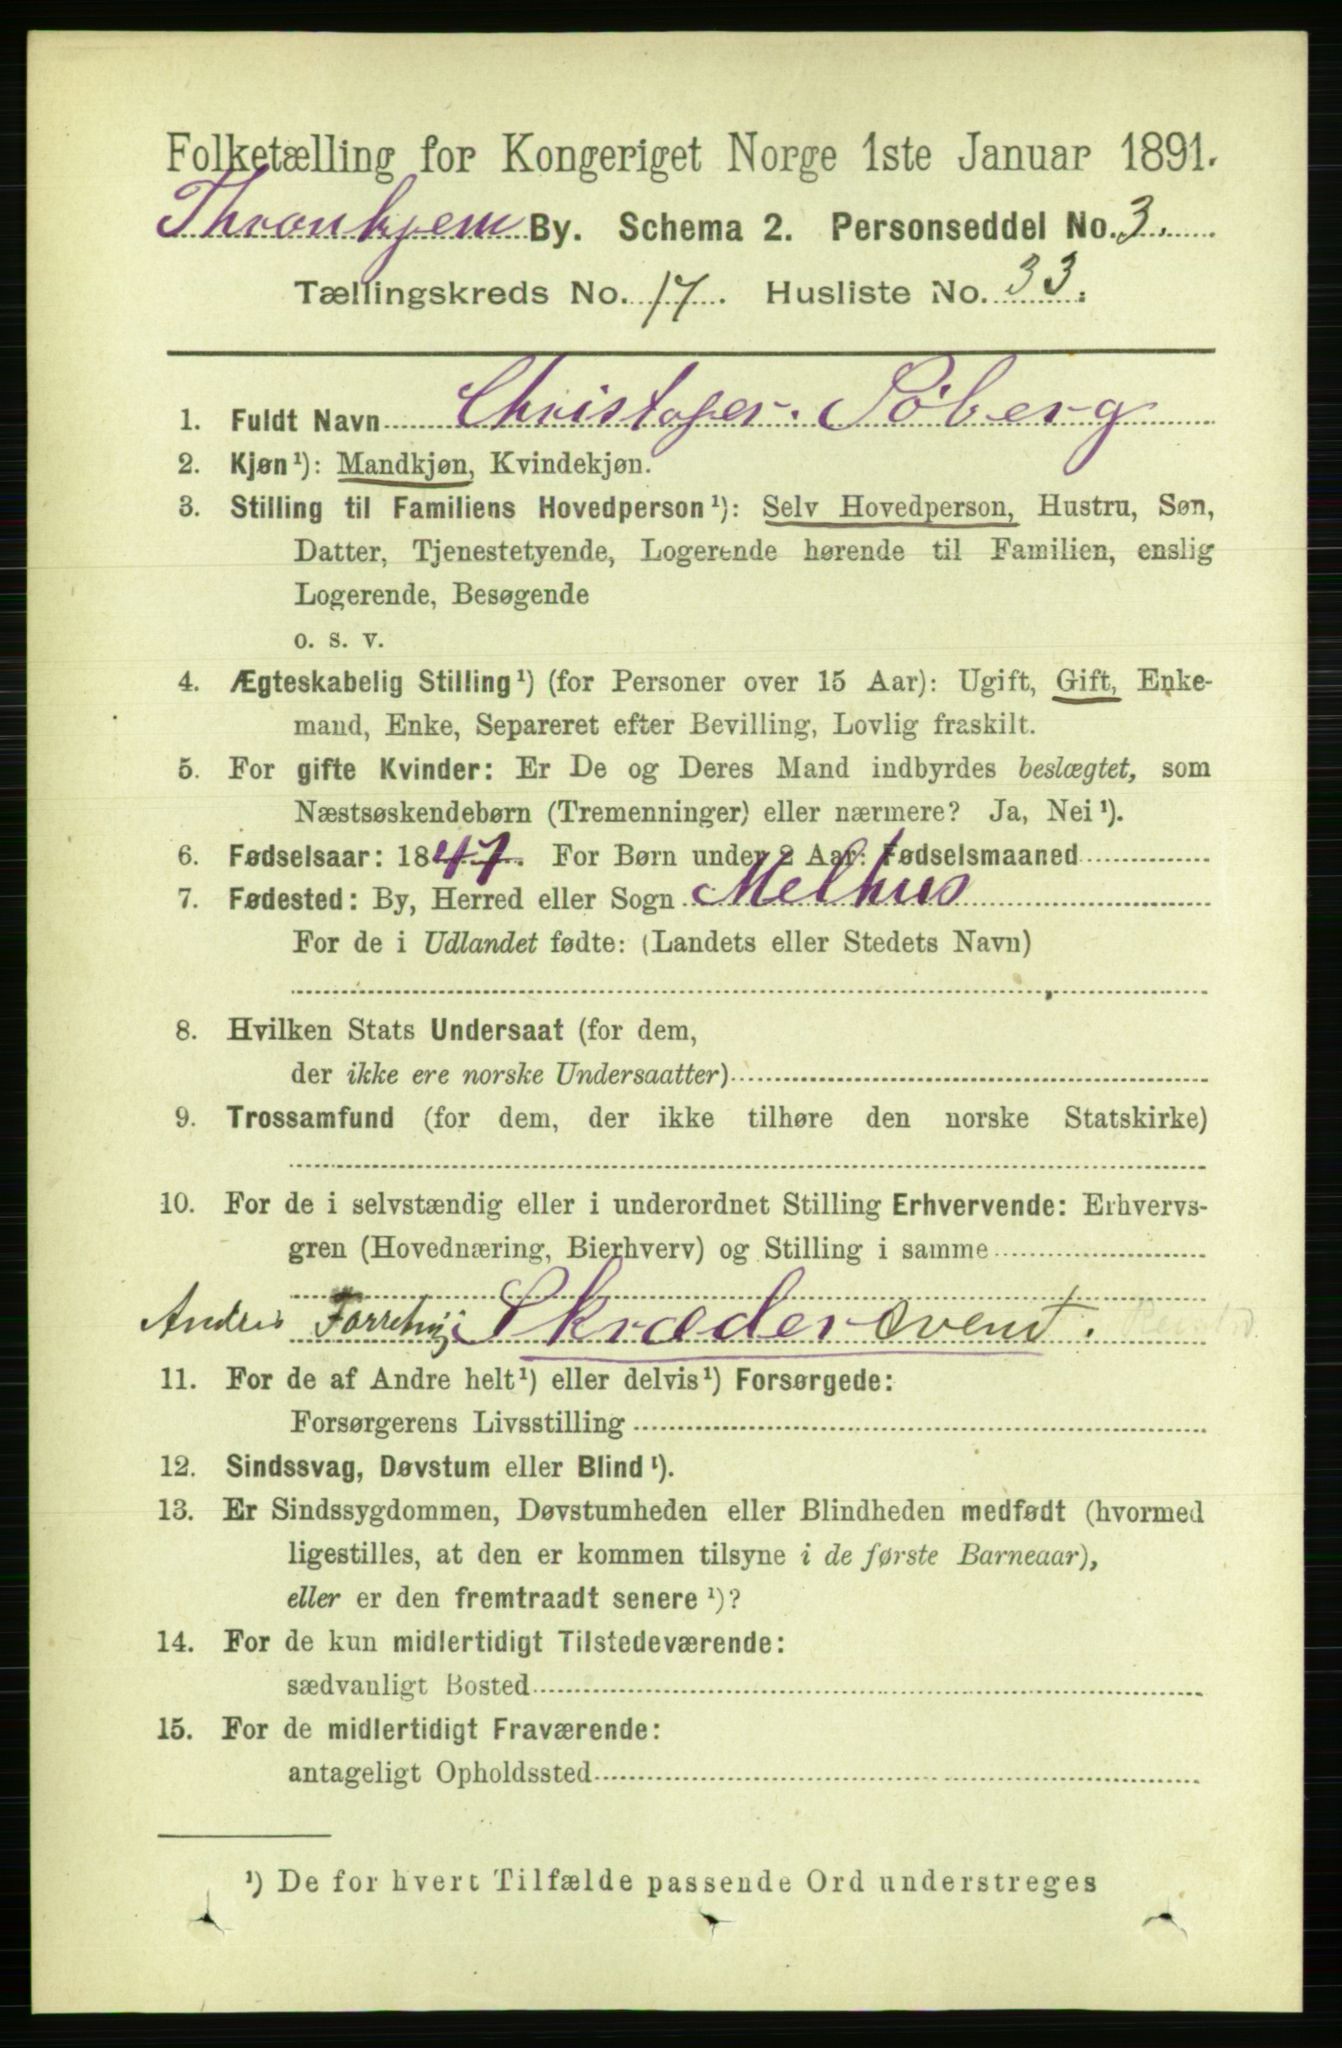 Folketælling for Kongeriget Norge 1ste Januar 1891.
Thronhjem By. Schema 2. Personseddel No. 3.
Tællingskreds No. 17. Husliste No. 33.
1. Fuldt Navn Christofer. Söberg
2. Kjøn¹): Mandkjøn, Kvindekjøn.
3. Stilling til Familiens Hovedperson¹): Selv Hovedperson, Hustru, Søn,
Datter, Tjenestetyende, Logerende hørende til Familien, enslig
Logerende, Besøgende
o. s. v.
4. Ægteskabelig Stilling¹) (for Personer over 15 Aar): Ugift, Gift, Enke-
mand, Enke, Separeret efter Bevilling, Lovlig fraskilt.
5. For gifte Kvinder: Er De og Deres Mand indbyrdes beslægtet, som
Næstsøskendebørn (Tremenninger) eller nærmere? Ja, Nei¹).
6. Fødselsaar: 1847. For Børn under 2 Aar: Fødselsmaaned
7. Fødested: By, Herred eller Sogn Melhus
For de i Udlandet fødte: (Landets eller Stedets Navn)
8. Hvilken Stats Undersaat (for dem,
der ikke ere norske Undersaatter)
9. Trossamfund (for dem, der ikke tilhøre den norske Statskirke)
10. For de i selvstændig eller i underordnet Stilling Erhvervende: Erhvervs-
gren (Hovednæring, Bierhverv) og Stilling i samme
Skrædersvend.
11. For de af Andre helt¹) eller delvis¹) Forsørgede:
Forsørgerens Livsstilling
12. Sindssvag, Døvstum eller Blind¹).
13. Er Sindssygdommen, Døvstumheden eller Blindheden medfødt (hvormed
ligestilles, at den er kommen tilsyne i de første Barneaar),
eller er den fremtraadt senere¹)?
14. For de kun midlertidigt Tilstedeværende:
sædvanligt Bosted
15. For de midlertidigt Fraværende:
antageligt Opholdssted
¹) De for hvert Tilfælde passende Ord understreges